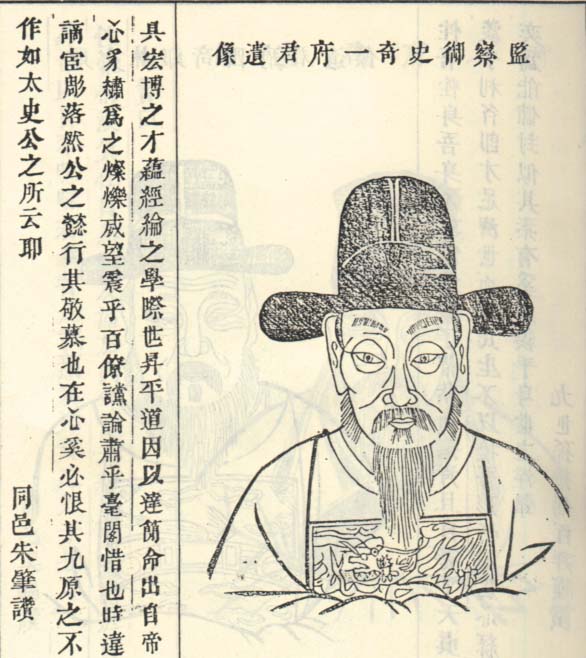 監察御史奇一府君遺像
具宏博之才蘊經綸之學際世昇平道因以達簡命出自帝
心豸繡爲之燦爍威望震乎百僚讜論肅乎臺閣惜也時違
謫宦彫落然公之懿行其敬慕也在心奚必恨其九原之不
作如太史公之所云耶
同邑朱肇讚